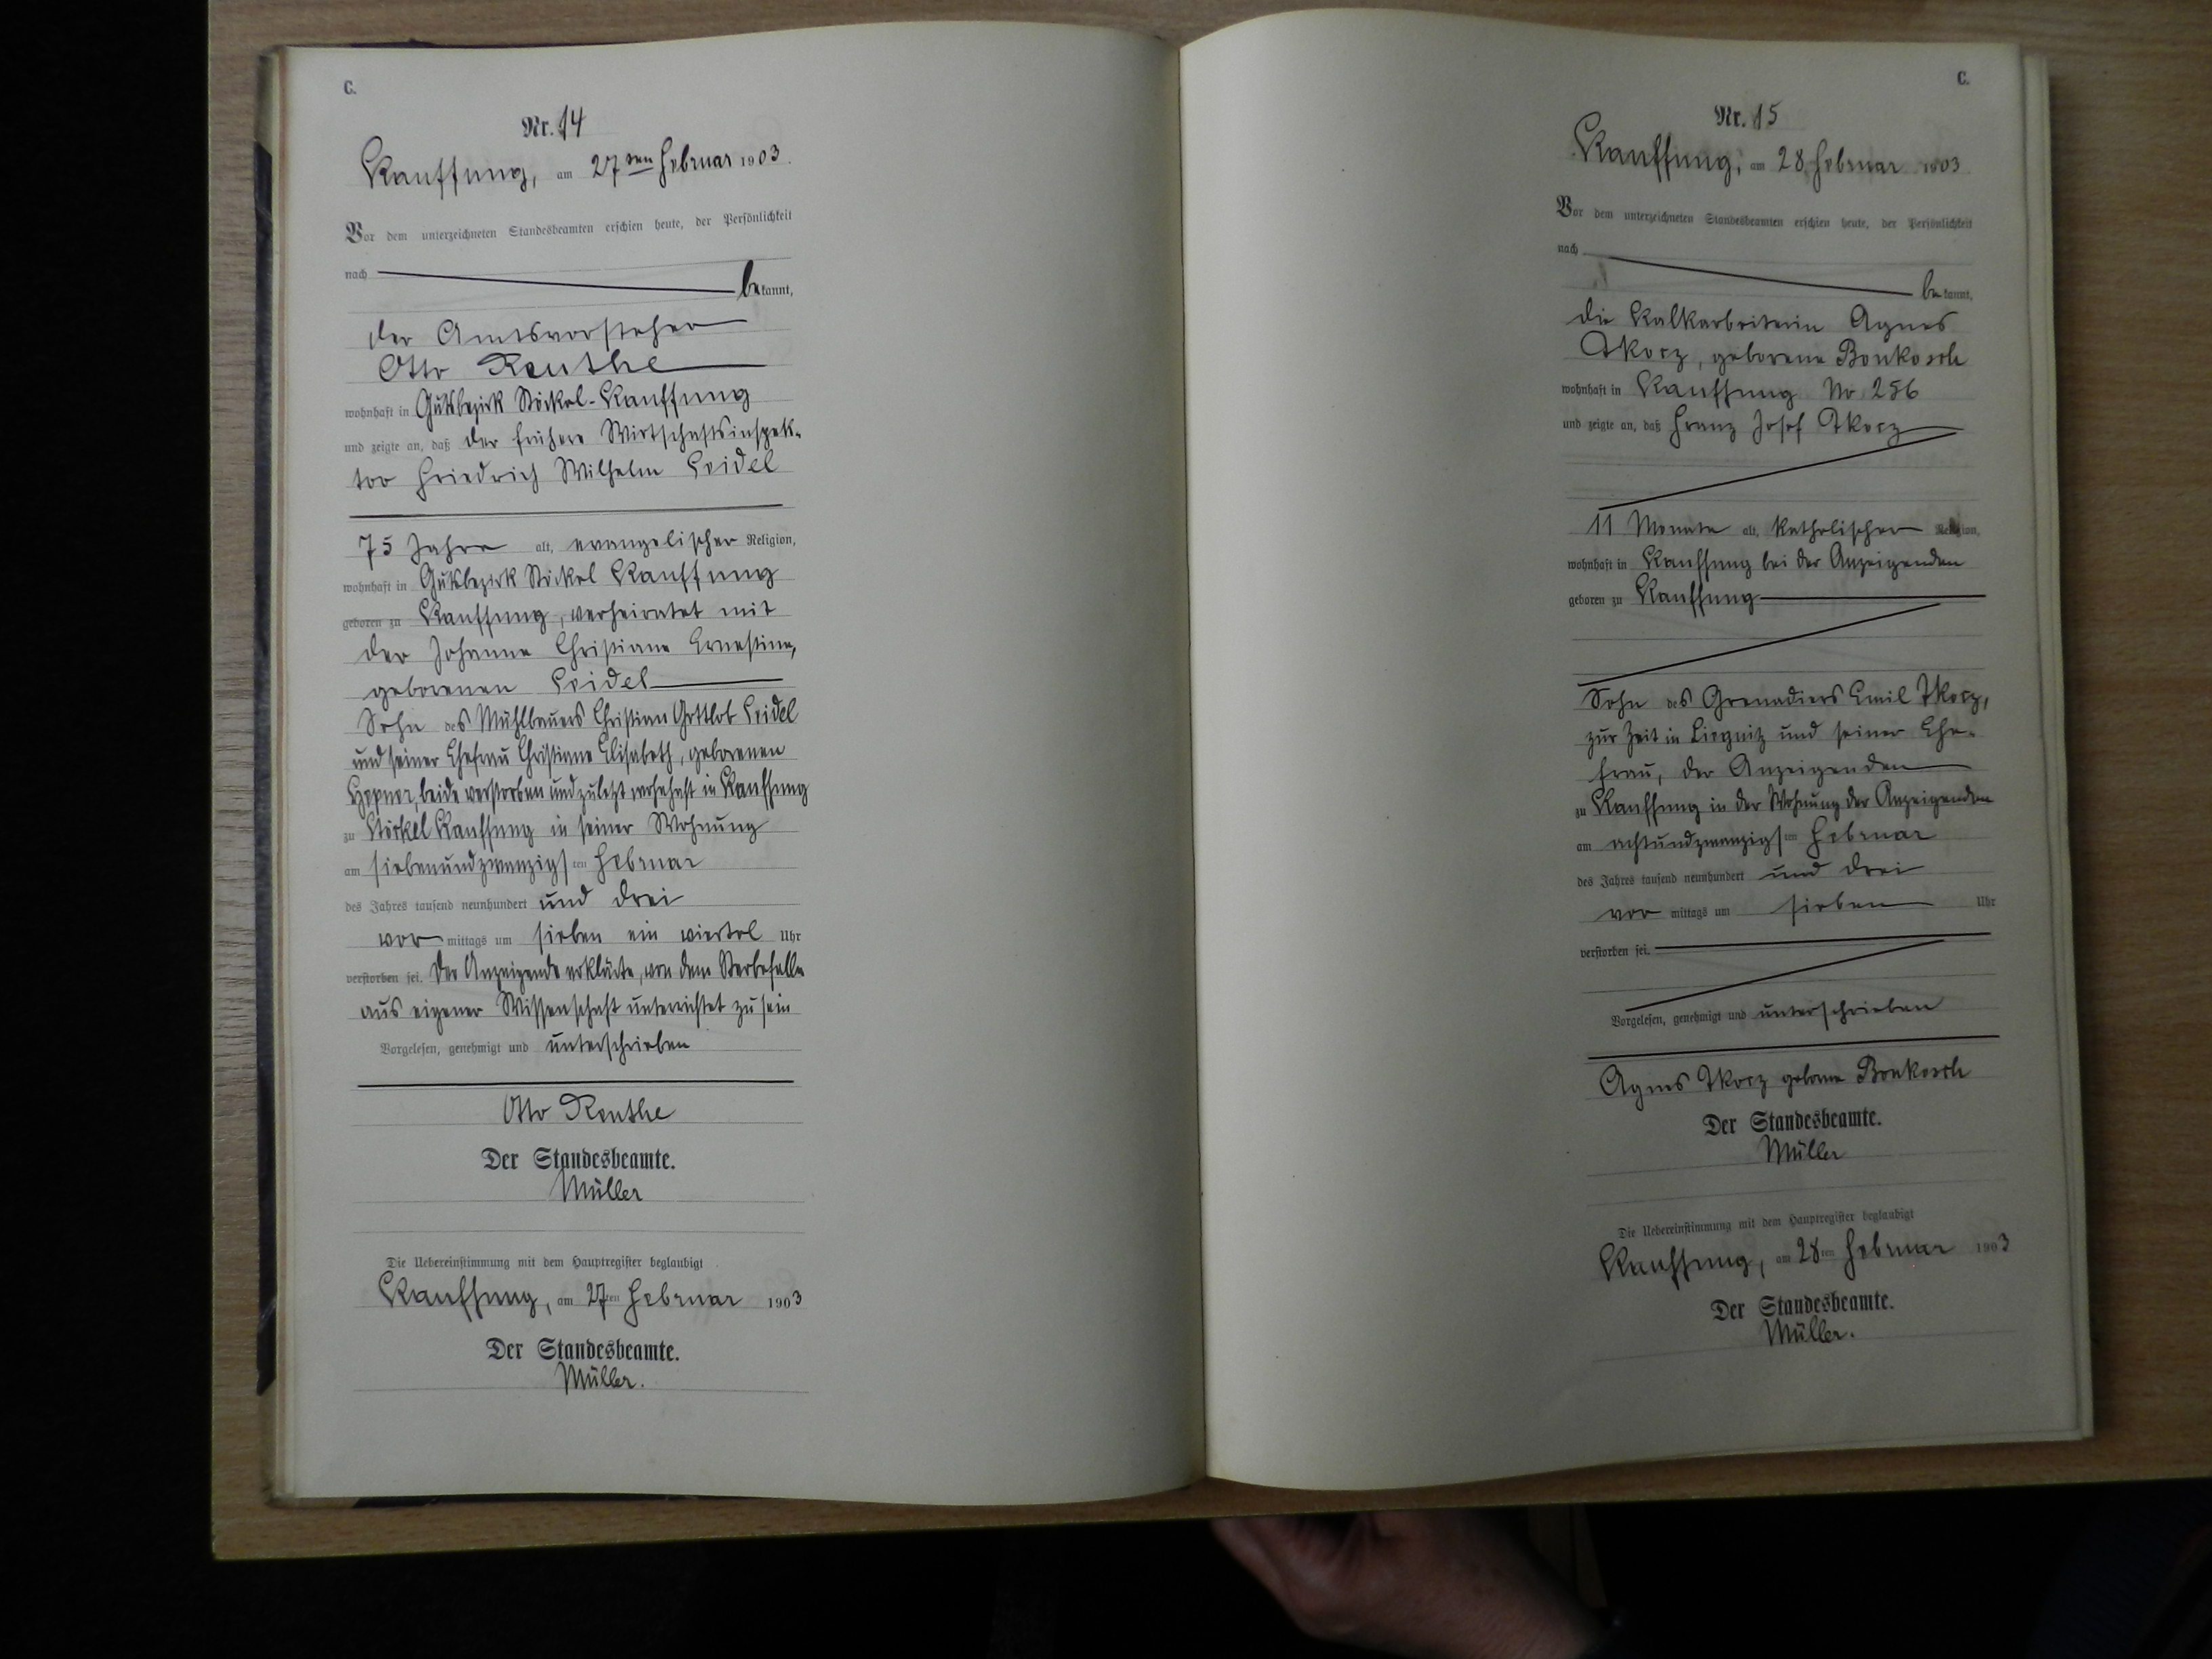 C.
Nr. 14
Kauffung, am 27ten Februar 1903.
Vor dem unterzeichneten Standesbeamten erschien heute, der Persönlichkeit
nach bekannt,
der Amtsvorsteher
Otto Reuthe
wohnhaft in Gutsbezirk Stöckel-Kauffung
und zeigte an, daß der frühere Wirtschaftsinspek-
tor Friedrich Wilhelm Seidel
75 Jahre alt, evangelischer Religion,
wohnhaft in Gutsbezirk Stöckel Kauffung
geboren zu Kauffung, verheiratet mit
der Johanne Christiane Ernestine,
geborenen Seidel
Sohn des Mühlbauers Christian Gottlob Seidel
und seiner Ehefrau Christiane Elisabeth, geborenen
beide verstorben und zuletzt wohnhaft in Kauffung
zu Stöckel Kauffung in seiner Wohnung
am siebenundzwanzigsten Februar
des Jahres tausend neunhundert und drei
vor mittags um sieben ein viertel Uhr
verstorben sei. Der Anzeigende erklärte, von dem Sterbefalle
aus eigener Wissenschaft unterrichtet zu sein
Vorgelesen, genehmigt und unterschrieben
Otto Reuthe
Der Standesbeamte.
Müller
Die Uebereinstimmung mit dem Hauptregister beglaubigt
Kauffung, am 27ten Februar 1903
Der Standesbeamte.
Müller.
C.
Nr. 15
Kauffung, am 28 Februar 1903
Vor dem unterzeichneten Standesbeamten erschien heute, der Persönlichkeit
nach bekannt,
die Kalkarbeiterin Agnes
Tkocz, geborene Bonkosch
wohnhaft in Kauffung No 256
und zeigte an, daß Franz Josef Tkocz
11 Monate alt, katholischer Religion,
wohnhaft in Kauffung bei der Anzeigenden
geboren zu Kauffung
Sohn des Grenadiers Emil Tkocz,
zur Zeit in Liegnitz und seiner Ehe-
frau, der Anzeigenden
zu Kauffung in der Wohnung der Anzeigenden
am achtundzwanzigsten Februar
des Jahres tausend neunhundert und drei
vor mittags um sieben Uhr
verstorben sei.
Vorgelesen, genehmigt und unterschrieben
Agnes Tkocz geborne Bonkosch
Der Standesbeamte.
Müller
Die Uebereinstimmung mit dem Hauptregister beglaubigt
Kauffung, am 28ten Februar 1903
Der Standesbeamte.
Müller.